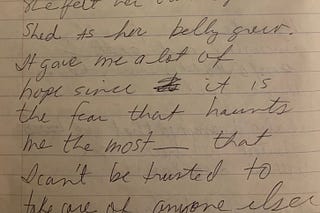 She felt her
shed as her belly grew.
It gave me a lot of
hope since it is
the fear that haunts
me the most — that
I can't be trusted to
take care of anyone else